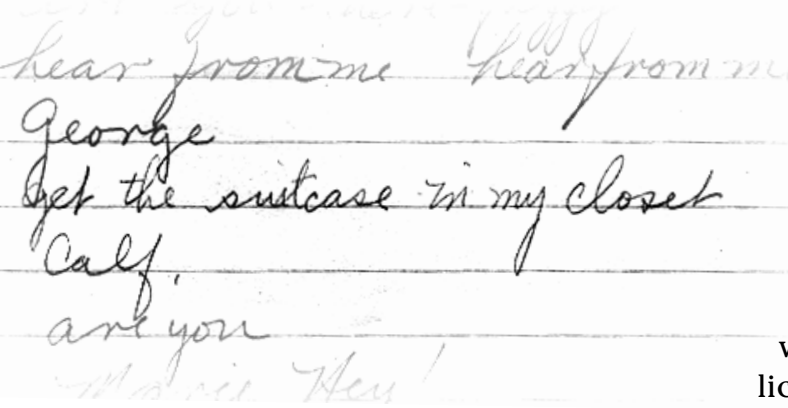 hear from me hear from m
George
get the suitcase in my closet
Calf.
are you
Marie Hey!